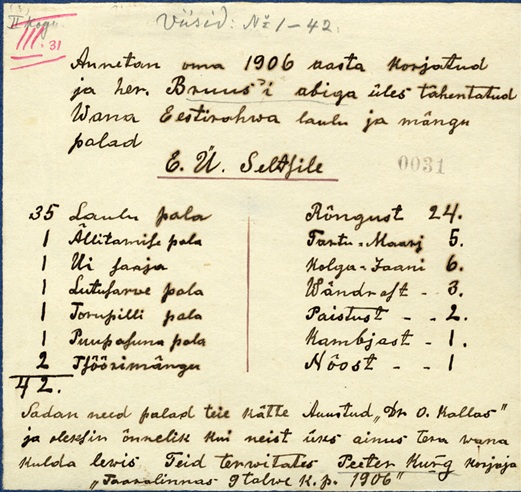 II Kogu
III. 31
Viisid: № 1-42.
Annetan oma 1906 aasta korjatud
ja her. Bruus'i abiga üles tähentatud
Wana Eestirohwa laulu ja mängu
palad
E. Ü. Seltsile
0031
35 Laulu pala
1 Ällitamise pala
1 Ui jaaja
1 Lutusarve pala
1 Torupilli pala
1 Puupasuna pala
2 Pföörimängu
42.
Rõngust 24.
Tartu-Maarj 5.
Kolga-Jaani 6.
Wändrast - - 3.
Paistust - - 2.
Kambjast - 1.
Nõost - - 1
Sadan need palad teie kätte Auustud „Dr. O. Kallas"
ja oleksin õnnelik kui neist üks ainus tera wana
kulda lewis Teid terwitates Peeter Kurg korjaja
„Taaralinnas 9 talve k. p. 1906"